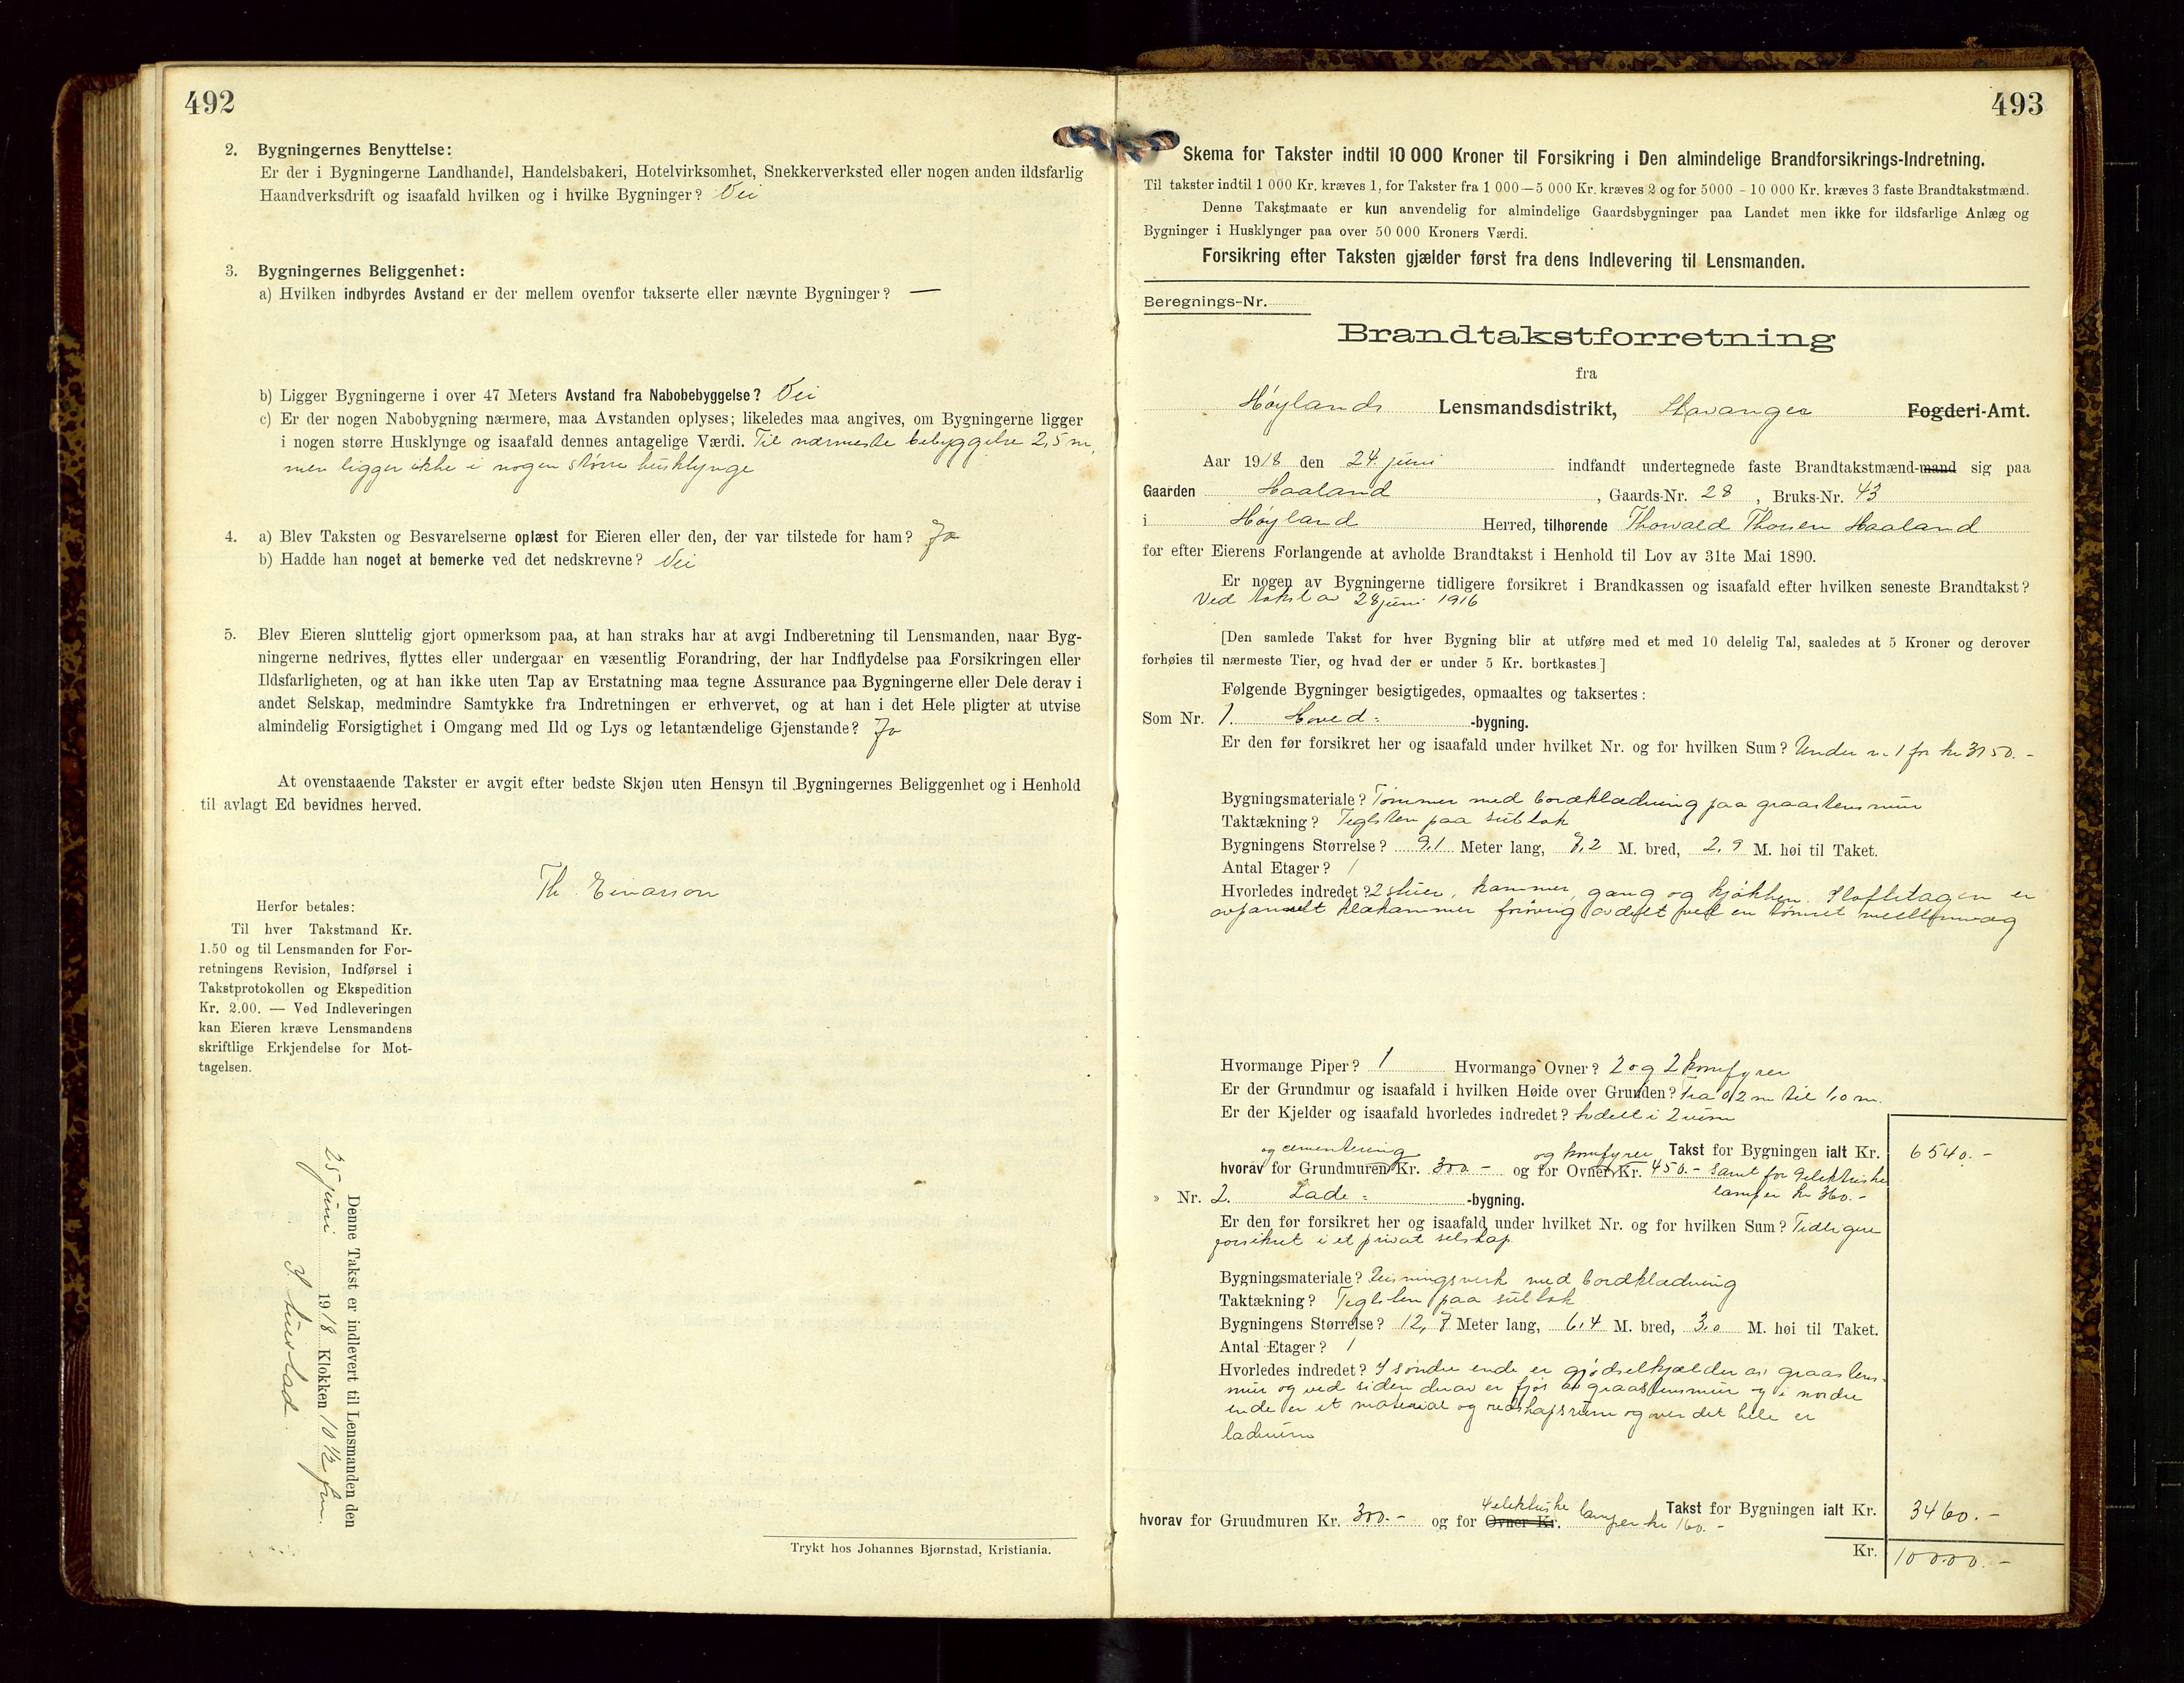 492
2. Bygningernes Benyttelse:
Er der i Bygningerne Landhandel, Handelsbakeri, Hotelvirksomhet, Snekkerverksted eller nogen anden ildsfarlig
Haandverksdrift og isaafald hvilken og i hvilke Bygninger? Nei
3. Bygningernes Beliggenhet:
a) Hvilken indbyrdes Avstand er der mellem ovenfor takserte eller nævnte Bygninger? —
b) Ligger Bygningerne i over 47 Meters Avstand fra Nabobebyggelse? Nei
c) Er der nogen Nabobygning nærmere, maa Avstanden oplyses; likeledes maa angives, om Bygningerne ligger
i nogen større Husklynge og isaafald dennes antagelige Værdi. Til nærmeste bebyggelse 2,5 m,
men ligger ikke i nogen större husklynge
4. a) Blev Taksten og Besvarelserne oplæst for Eieren eller den, der var tilstede for ham? Ja
b) Hadde han noget at bemerke ved det nedskrevne? Nei
5. Blev Eieren sluttelig gjort opmerksom paa, at han straks har at avgi Indberetning til Lensmanden, naar Byg-
ningerne nedrives, flyttes eller undergaar en væsentlig Forandring, der har Indflydelse paa Forsikringen eller
Ildsfarligheten, og at han ikke uten Tap av Erstatning maa tegne Assurance paa Bygningerne eller Dele derav i
andet Selskap, medmindre Samtykke fra Indretningen er erhvervet, og at han i det Hele pligter at utvise
almindelig Forsigtighet i Omgang med Ild og Lys og letantændelige Gjenstande? Ja
At ovenstaaende Takster er avgit efter bedste Skjøn uten Hensyn til Bygningernes Beliggenhet og i Henhold
til avlagt Ed bevidnes herved.
Th. Einarson
Herfor betales:
Til hver Takstmand Kr.
1.50 og til Lensmanden for For-
retningens Revision, Indførsel i
Takstprotokollen og Ekspedition
Kr. 2.00. — Ved Indleveringen
kan Eieren kræve Lensmandens
skriftlige Erkjendelse for Mot-
tagelsen.
Denne Takst er indlevert til Lensmanden den
25 juni 1918 Klokken 10 ½ fm.
Trykt hos Johannes Bjørnstad, Kristiania.
493
Skema for Takster indtil 10 000 Kroner til Forsikring i Den almindelige Brandforsikrings-Indretning.
Til takster indtil 1 000 Kr. kræves 1, for Takster fra 1 000—5 000 Kr. kræves 2 og for 5000 - 10 000 Kr. kræves 3 faste Brandtakstmænd.
Denne Takstmaate er kun anvendelig for almindelige Gaardsbygninger paa Landet men ikke for ildsfarlige Anlæg og
Bygninger i Husklynger paa over 50 000 Kroners Værdi.
Forsikring efter Taksten gjælder først fra dens Indlevering til Lensmanden.
Beregnings-Nr.
Brandtakstforretning
fra
Høylands Lensmandsdistrikt, Stavanger Fogderi-Amt.
Aar 1918 den 24. juni indfandt undertegnede faste Brandtakstmænd-mand sig paa
Gaarden Haaland, Gaards-Nr. 28, Bruks-Nr. 43
i Høyland Herred, tilhørende Thorvald Thorsen Haaland
for efter Eierens Forlangende at avholde Brandtakst i Henhold til Lov av 31te Mai 1890.
Er nogen av Bygningerne tidligere forsikret i Brandkassen og isaafald efter hvilken seneste Brandtakst?
Ved takst av 28 juni 1916
[Den samlede Takst for hver Bygning blir at utføre med et med 10 delelig Tal, saaledes at 5 Kroner og derover
forhøies til nærmeste Tier, og hvad der er under 5 Kr. bortkastes]
Følgende Bygninger besigtigedes, opmaaltes og taksertes:
Som Nr. 1. Hoved- -bygning.
Er den før forsikret her og isaafald under hvilket Nr. og for hvilken Sum? Under nr. 1 for kr 3150.-
Bygningsmateriale? Tømmer med bordklædning paa graastensmur
Taktækning? Teglsten paa sutak
Bygningens Størrelse? 9,1 Meter lang, 7,2 M. bred, 2,9 M. høi til Taket.
Antal Etager? 1
Hvorledes indredet? 2 stuer, kammer, gang og kjøkken. Loftetagen er
avpanelt klækammer forøvrig avdelt ved en tømret mellemvæg
Hvormange Piper? 1 Hvormange Ovner? 2 og 2 komfyrer
Er der Grundmur og isaafald i hvilken Høide over Grunden? Fra 0,2 m til 1,0 m.
Er der Kjelder og isaafald hvorledes indredet? Avdelt i 2 rum
og cementering og komfyrer Takst for Bygningen ialt Kr. 6540.-
hvorav for Grundmuren Kr. 300.- og for Ovner Kr. 450.- samt for 9 elektriske
lamper kr 360.-
» Nr. 2. Lade- -bygning.
Er den før forsikret her og isaafald under hvilket Nr. og for hvilken Sum? Tidligere
forsikret i et privat selskap
Bygningsmateriale? Reisningsverk med bordklædning
Taktækning? Teglsten paa sutak
Bygningens Størrelse? 12,7 Meter lang, 6,4 M. bred, 3,0 M. høi til Taket.
Antal Etager? 1
Hvorledes indredet? I søndre ende er gjødselkjælder av graastens-
mur og ved siden derav er fjøs av graastensmur og i nordre
ende er et material og redskapsrum og over det hele er
laderum
4 elektriske Takst for Bygningen ialt Kr. 3460.-
hvorav for Grundmuren Kr. 300.- og for Ovner Kr. lamper kr 160.-
Kr. 10000.-